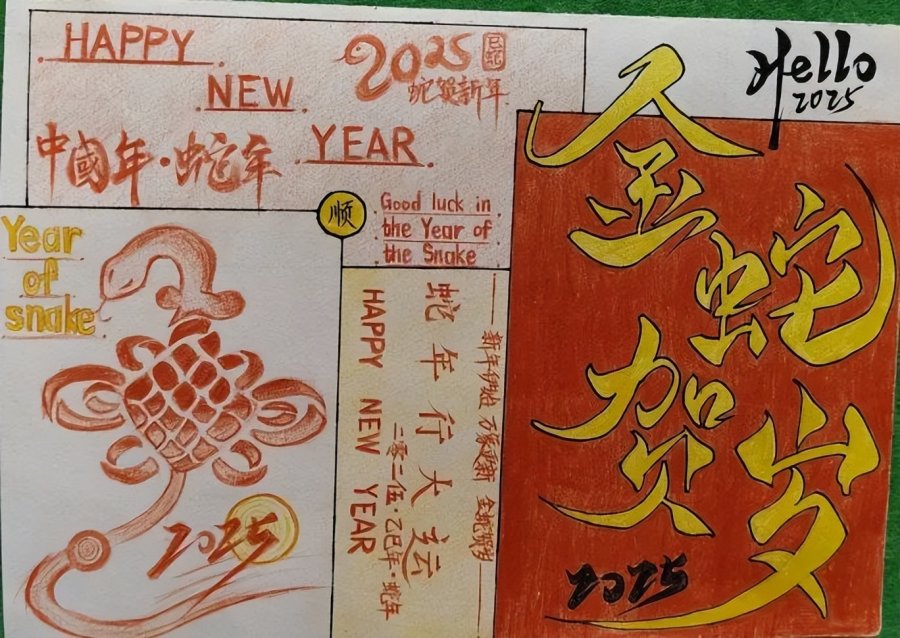 HAPPY
NEW
YEAR
2025
巳蛇
蛇贺新年
中國年·蛇年
顺
Good luck in
the Year of
the Snake
Year
of
snake
2025
蛇年行大运
二零二伍·乙巳年·蛇年
HAPPY NEW YEAR
新年伊始 万象更新 金蛇贺岁
Hello
2025
金蛇
贺岁
2025